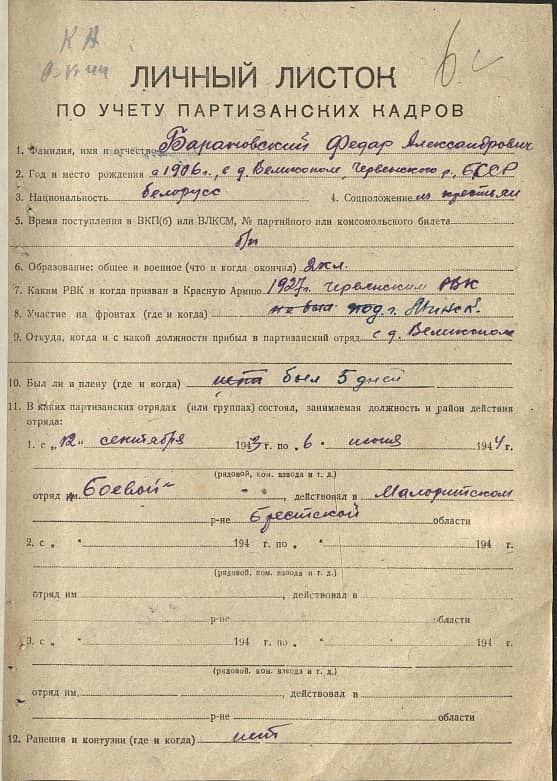 ЛИЧНЫЙ ЛИСТОК
ПО УЧЕТУ ПАРТИЗАНСКИХ КАДРОВ
1. Фамилия, имя и отчество Барановский Федар Александрович
2. Год и место рождения 1906 г., с д. Великополе, Червенского р., БССР
3. Национальность белорусс 4. Соцположение из крестьян
5. Время поступления в ВКП(б) или ВЛКСМ, № партийного или комсомольского билета
б/п
6. Образование: общее и военное (что и когда окончил) 2 кл.
7. Каким РВК и когда призван в Красную Армию 1927 г. Червенским РВК
8. Участие на фронтах (где и когда) не был под г. Минск.
9. Откуда, когда и с какой должности прибыл в партизанский отряд с д. Великополе
10. Был ли в плену (где и когда) нет был 5 дней
11. В каких партизанских отрядах (или группах) состоял, занимаемая должность и район действия
отряда:
1. с „12" сентября 1943 г. по „6" июня 1944 г.
(рядовой, ком. взвода и т. д.)
отряд им. „Боевой", действовал в Малоритском
р-не Брестской области
2. с „ " 194 г. по „ " 194 г.
(рядовой, ком. взвода и т. д.)
отряд им, действовал в
р-не области
3. с „ " 194 г. по „ " 194 г.
(рядовой, ком. взвода и т. д.)
отряд им, действовал в
р-не области
12. Ранения и контузии (где и когда) нет